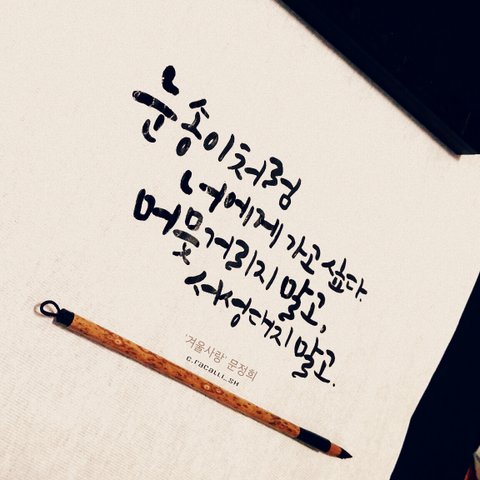 눈송이처럼
너에게 가고 싶다.
머뭇거리지 말고,
서성대지 말고.
'겨울사랑' 문정희
c.racalli_SH